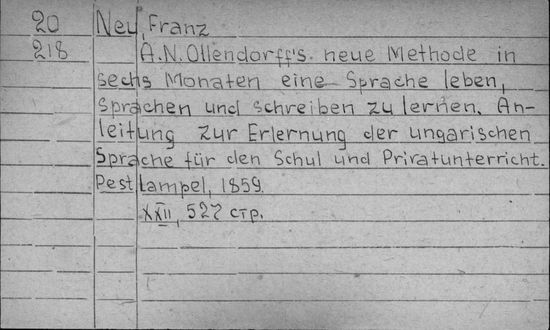 20 Ney, Franz
218 A.N. Ollendorff's neue Methode in
sechs Monaten eine Sprache leben,
sprachen und schreiben zu lernen. An-
leitung zur Erlernung der ungarischen
Sprache für den Schul und Privatunterricht.
Pest Lampel, 1859.
XXII, 527 стр.